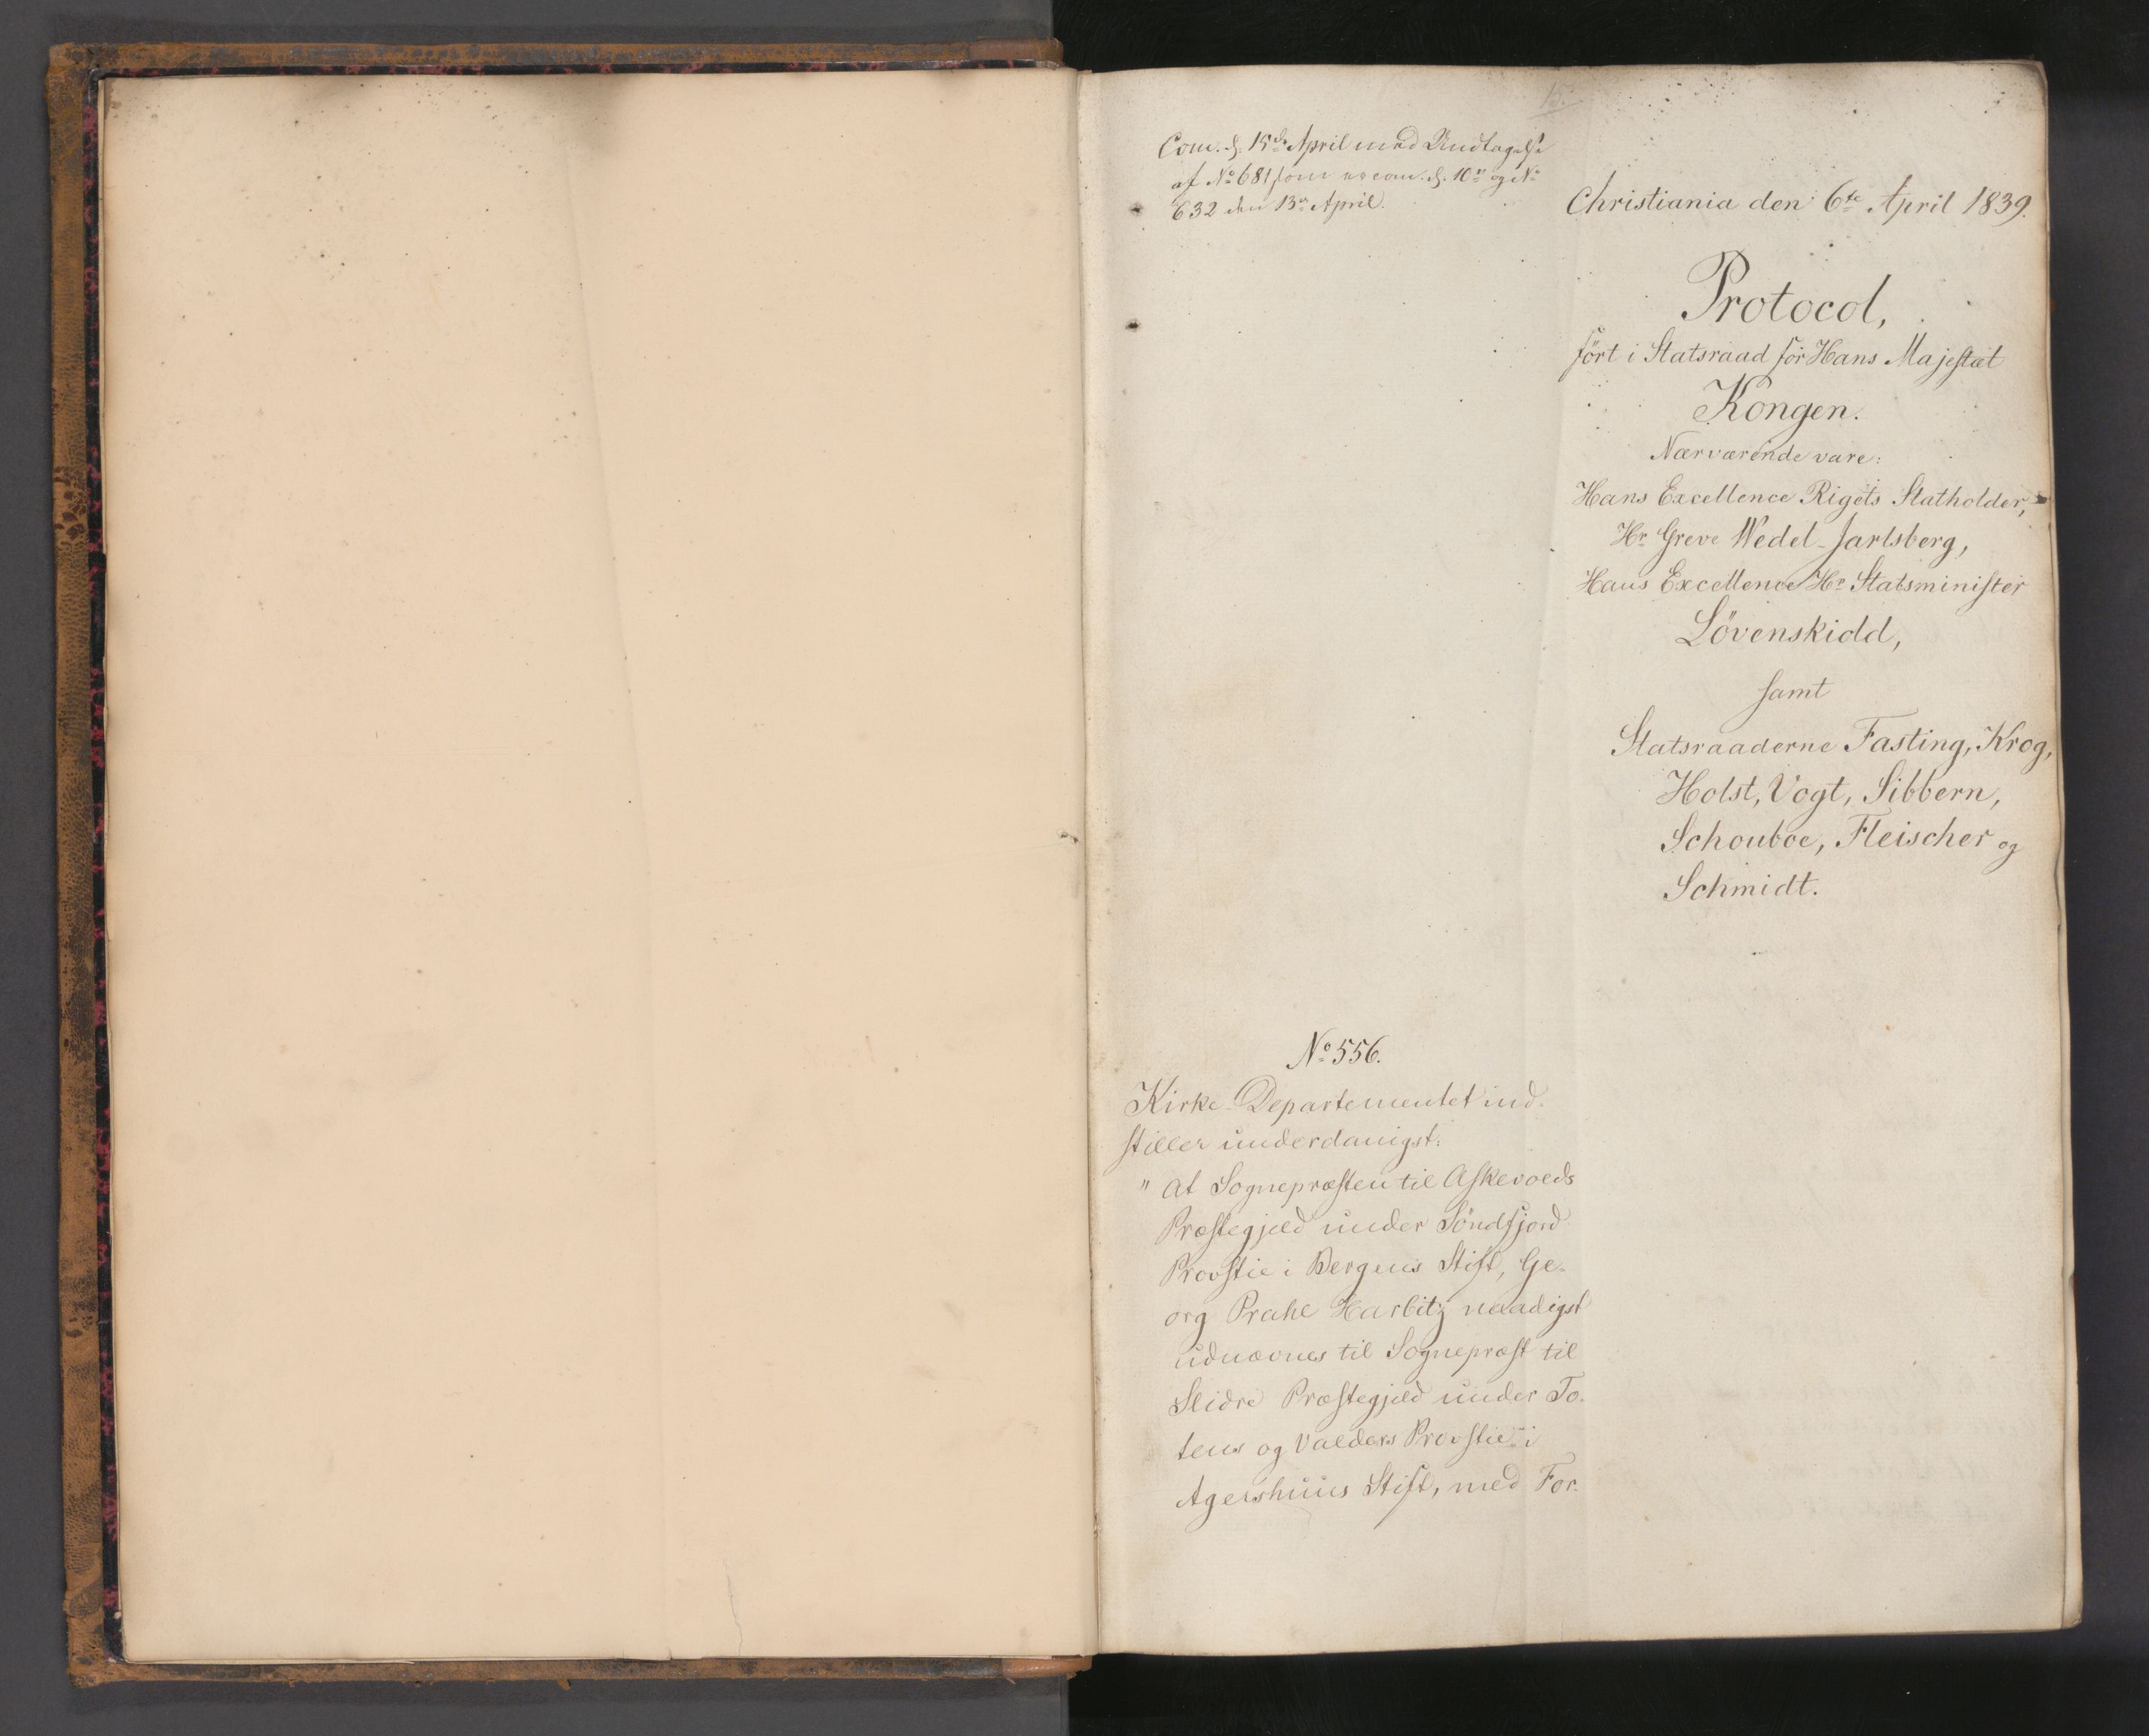 15.
Com. d. 15de April med Undtagelse
af No 681 som er com. d. 10de og No
632 den 13de April.
Christiania den 6te April 1839.
Protocol,
ført i Statsraad for Hans Majestæt
Kongen.
Nærværende vare:
Hans Excellence Rigets Statholder,
Hr Greve Wedel-Jarlsberg,
Hans Excellence Hr Statsminister
Lövenskiold,
samt
Statsraaderne Fasting, Krog,
Holst, Vogt, Sibbern,
Schouboe, Fleischer og
Schmidt.
No 556.
Kirke-Departementet ind-
stiller underdanigst:
" at Sognepræsten til Askevolds
Præstegjeld under Söndfjord
Provstie i Bergens Stift, Ge-
org Prahl Harbitz naadigst
udnævnes til Sognepræst til
Slidre Præstegjeld under To-
tens og Valders Provstie i
Agershuus Stift, med For-